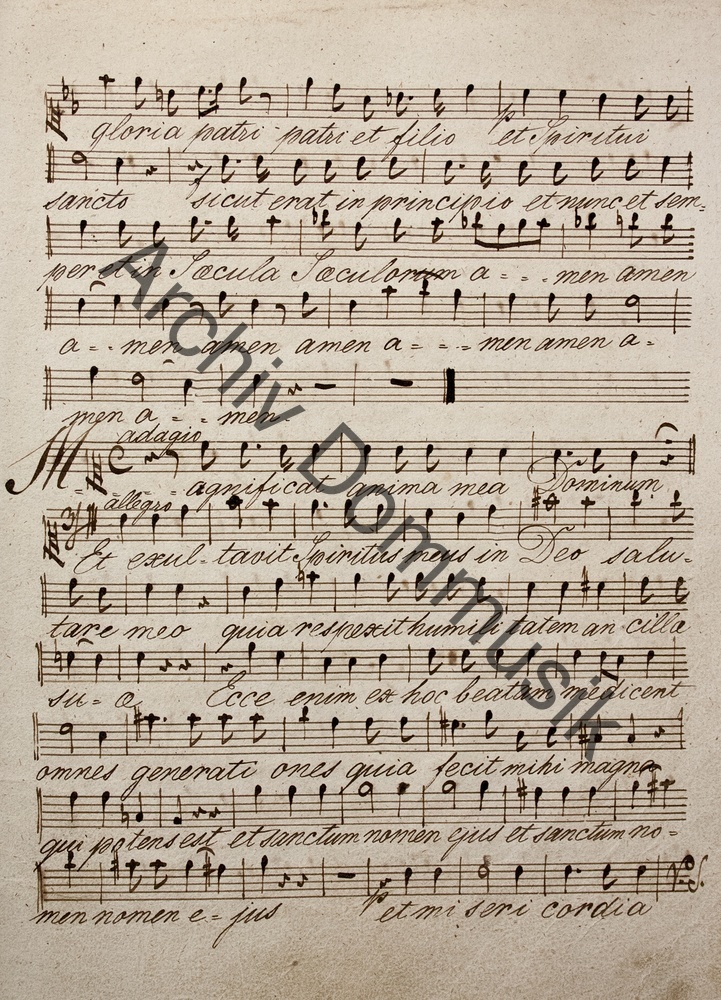 gloria patri patri et filio et Spiritui
sancto sicut erat in principio et nunc et sem-
per et in Sæcula Sæculorum a - - - men amen
a - - men amen amen a - - - men amen a -
men a - - men
adagio
M - - - agnificat anima mea Dominum
allegro
Et exul-tavit Spiritus meus in Deo salu-
tare meo quia respexit humilitatem an cillæ
su - æ Ecce enim ex hoc beatam me dicent
omnes generati ones quia fecit mihi magna
qui potens est et sanctum nomen ejus et sanctum no-
men nomen e - jus et mi seri cordia
Archiv Dommusik